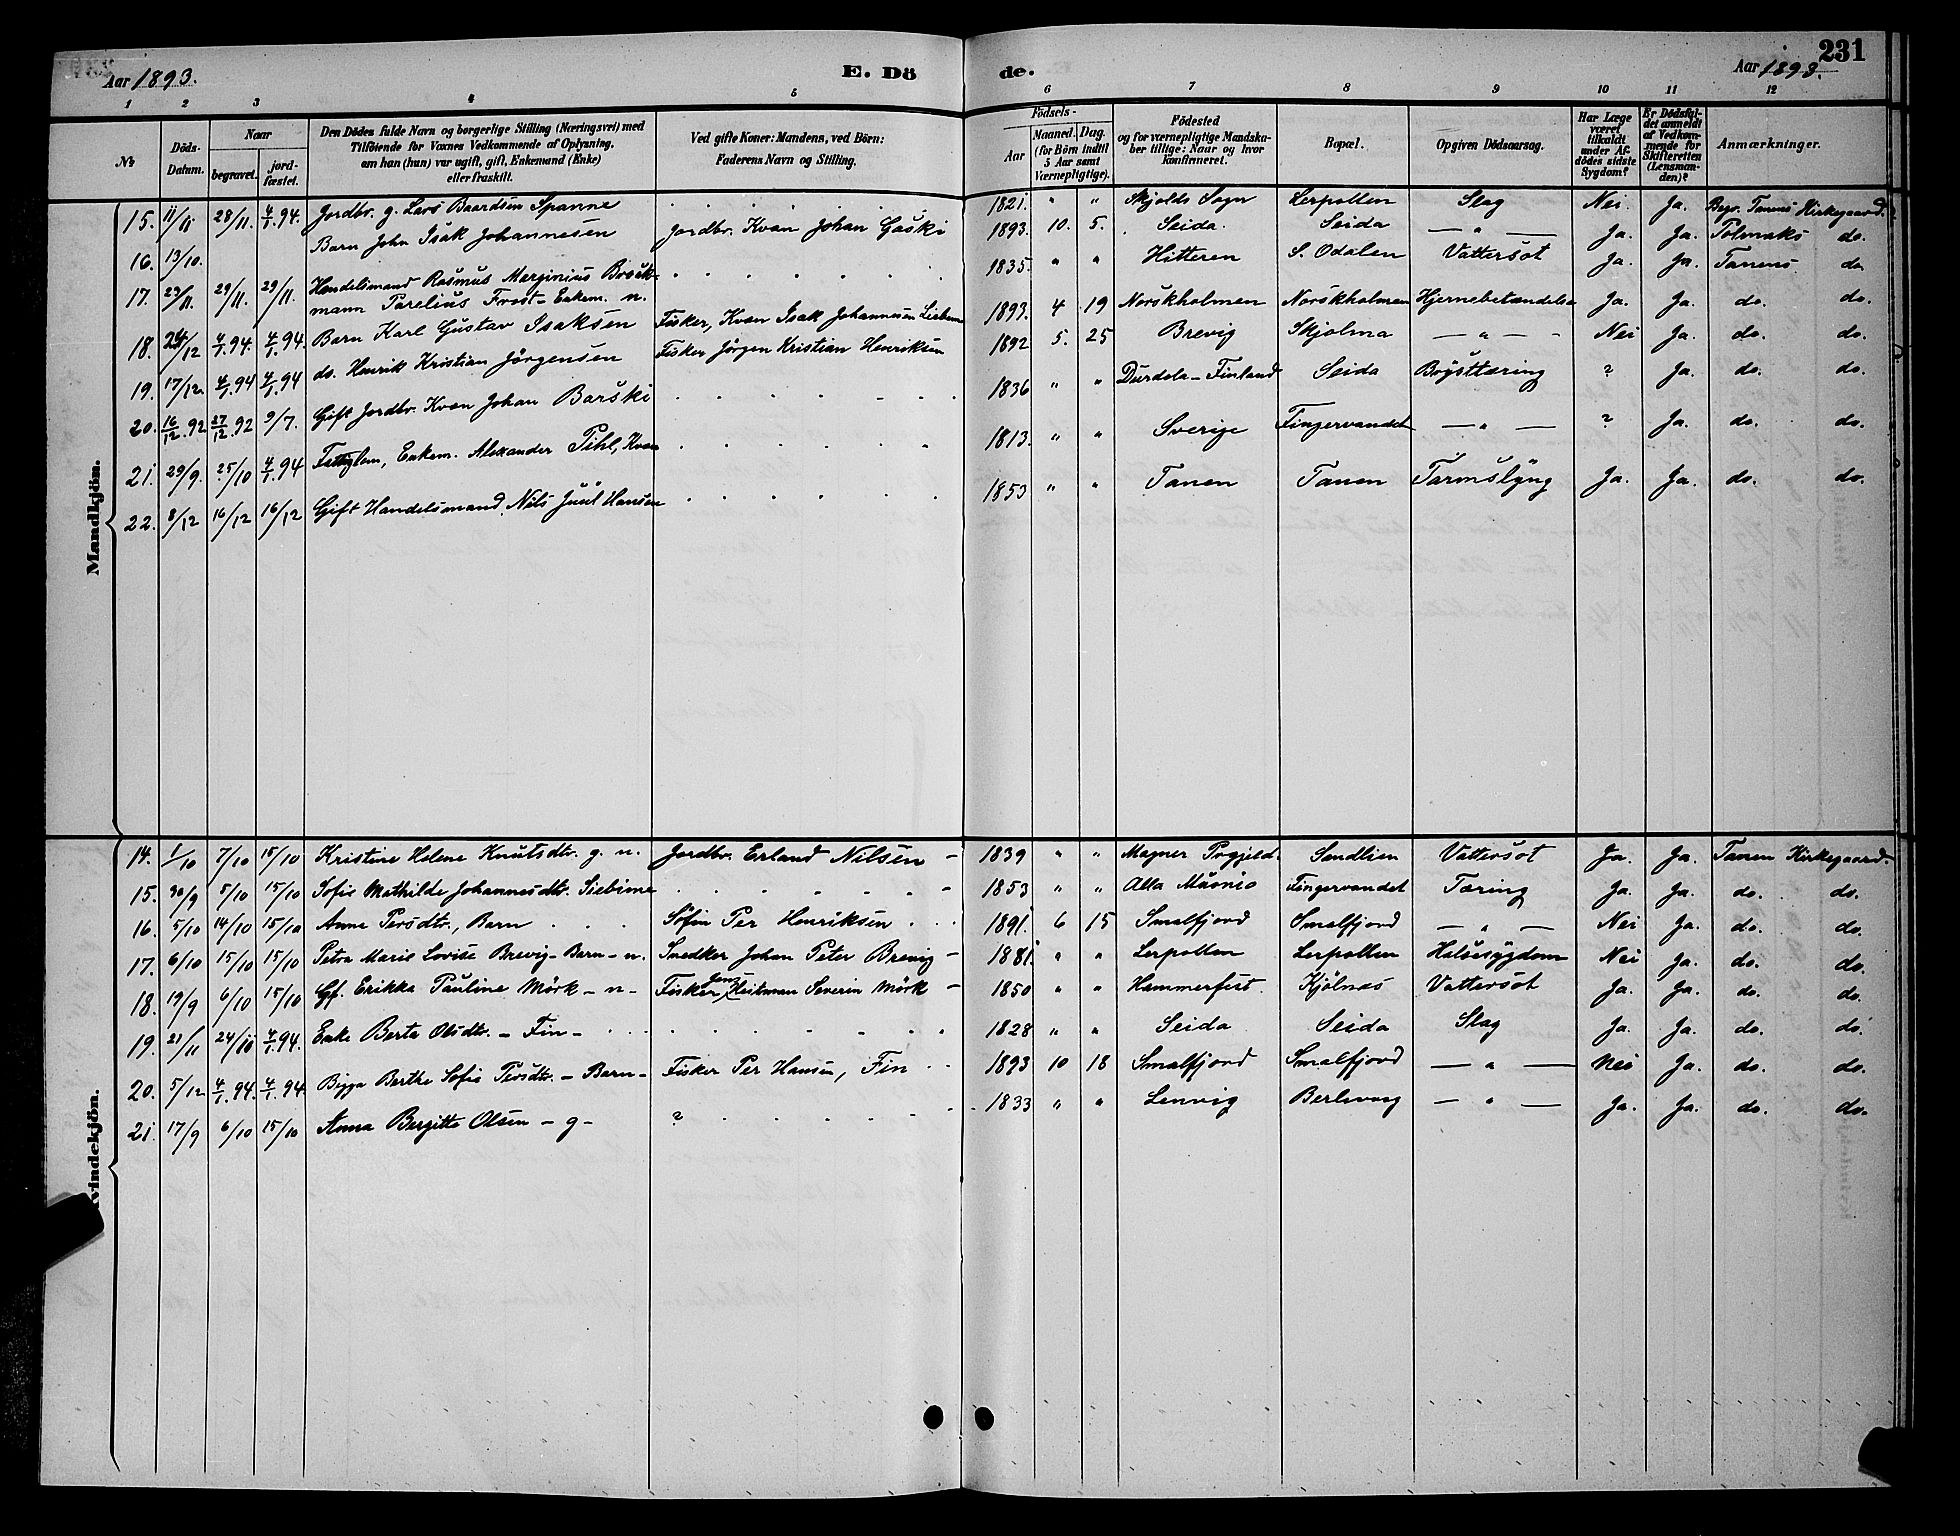 Aar 1893.
E. Dö
de.
Aar 1893
231
1 2 3 4 5 6 7 8 9 10 11 12
№
Döds-Datum.
Naar
begravet.
jord-fæstet.
Den Dödes fulde Navn og borgerlige Stilling (Næringsvei) med
Tilföiende for Voxnes Vedkommende af Oplysning,
om han (hun) var ugift, gift, Enkemand (Enke)
eller fraskilt.
Ved gifte Koner: Mandens, ved Börn:
Faderens Navn og Stilling.
Födsels-
Aar
Maaned. Dag.
(for Börn indtil
5 Aar samt
Værnepligtige).
Födested
og for værnepligtige Mandska-
ber tillige: Naar og hvor
konfirmeret.
Bopæl.
Opgiven Dödsaarsag.
Har Læge
været
tilkaldt
under Af-
dödes sidste
Sygdom?
Er Dödsfal-
det anmeldt
af Vedkom-
mende for
Skifteretten
(Lensman-
den)?
Anmærkninger.
Mandkjön.
15. 11/11 28/11. 4/1.94. Jordbr. g. Lars Baardsen Spanne 1821. " " Skjolds Sogn Lerpollen Slag Nei. Ja. Begr. Tanens Kirkegaard.
16. 13/10. Barn John Isak Johannesen Jordbr. Kvæn Johan Gaski 1893. 10. 5. Seida. Seida — " — Ja. Ja. Polmaks do.
17. 23/11. 29/11. 29/11. Handelsmand Rasmus Marginius Brock-
mann Parelius Frost - Enkem. n. 1835. " " Hitteren S. Odalen Vattersot Ja. Ja. Tanens do
18. 24/12 4/1.94. 4/1.94. Barn Karl Gustav Isaksen Fisker, Kvæn Isak Johannesen 1893. 4 19 Norskholmen Norskholmen Hjernebetændelse Ja. Ja. do. do.
19. 17/12. 4/1.94 4/1.94 do. Henrik Kristian Jörgensen Fisker Jörgen Kristian Henriksen 1892 5. 25 Brevig Skjolma — " — Nei Ja. do. do.
20. 16/12.92 27/12.92 9/7. Gift Jordbr. Kvæn Johan Barski 1836 " " Finland Seida Brÿsttæring ? Ja. do. do.
21. 29/9. 25/10 4/1.94 Enkem. Alexander Pihl, Kvæn 1813. " " Sverige Fingervandet — " — ? Ja. do. do.
22. 8/12 16/12 16/12 Gift Handelsmand Nils Juul Hansen 1853 " " Tanen Tanen Tarmslÿng Ja. Ja. do. do.
Kvindekjön.
14. 1/10 7/10 15/10 Kristine Helene Knutsdtr. g. n. Jordbr. Erland Nilsen - 1839 " " Magner Prgjeld. Sandlien Vattersot Ja. Ja. Tanen Kirkegaard.
15. 30/9 5/10 15/10 Sofie Mathilde Johannesdtr. Siebime 1853 " " Alta Fingervandet Tæring Ja. Ja. do. do.
16. 5/10 14/10 15/10 Anna Persdtr., Barn Söfin Per Henriksen 1891. 6 15 Smalfjord Smalfjord — " — Nei Ja. do. do.
17. 6/10 15/10 15/10 Petra Marie Lovise Brevig - Barn - n. Snedker Johan Peter Brevig - 1881. " " Lerpollen Lerpollen Halssÿgdom Nei Ja. do. do.
18. 19/9 6/10 15/10 Gf. Erikka Pauline Mörk - n - Fisker Jens Heitman Severin Mörk - 1850 " " Hammerfest. Kjölnæs Vattersot Ja. Ja. do. do.
19. 21/11 24/11 4/1.94. Enke Berta Olsdtr. - Fin - 1828 " " Seida Seida Slag Ja. Ja. do. do.
20. 5/12 4/1.94. 4/1.94. Bigga Berthe Sofie Persdtr. - Barn - Fisker Per Hansen, Fin 1893 10 18 Smalfjord Smalfjord — " — Nei Ja. do. do.
21. 17/9 6/10 15/10 Anna Bergitte Olsen - g - ? 1833 " " Lenvig Berlevaag — " — Ja. Ja. do. do.